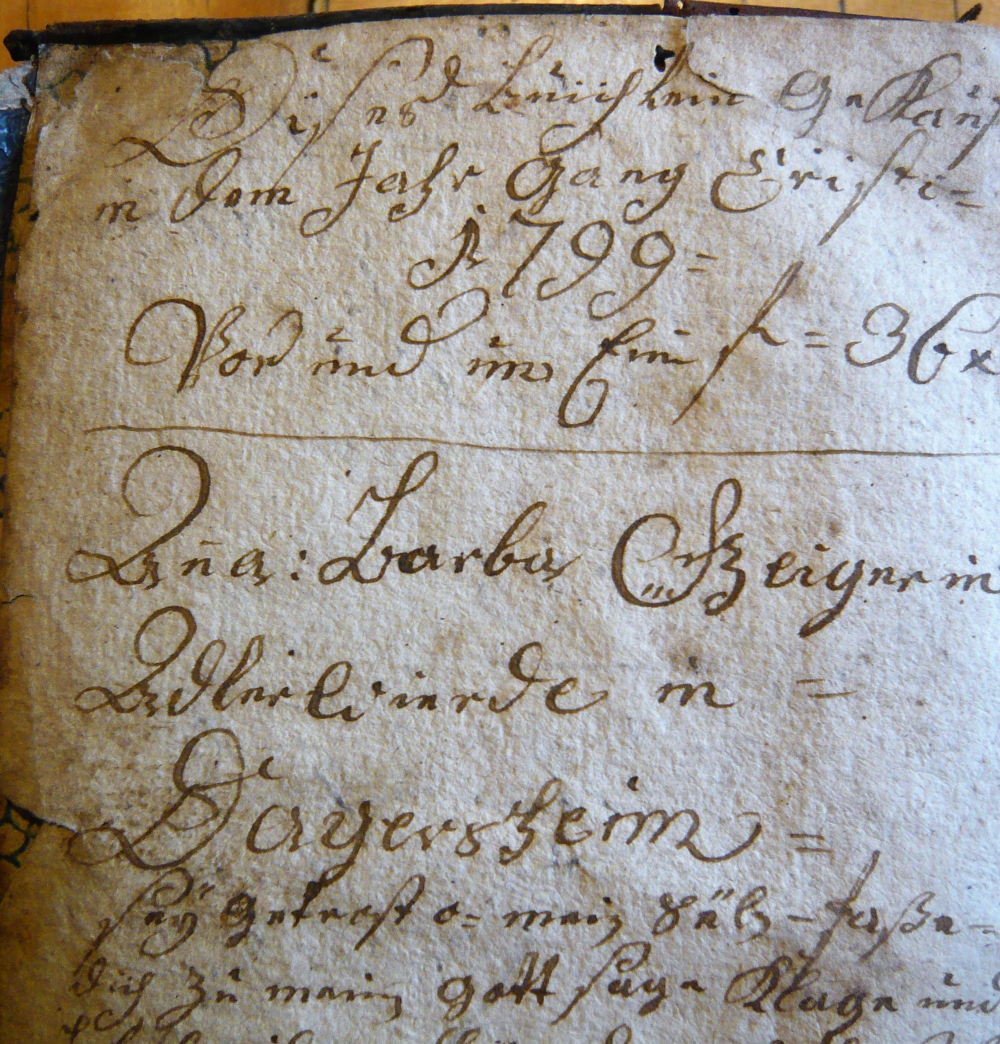 Dises Buichlein Gekauf
in dem Jahr Gang Cristi=
1799=
Vor und um Ein f = 36 x
Ana: Barba Zeigerin
Adler Wierde in =
Dagersheim =
sey getrost o= mein Seel – faße=
dich zu mein Gott sage Klage und